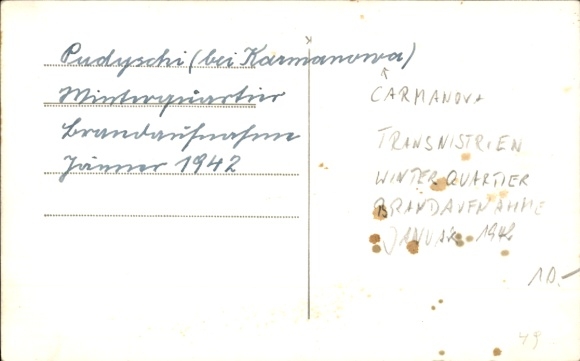 Pudyschi (bei Karmanowa)
Winterquartier
Brandaufnahme
Jänner 1942
CARMANOVA
TRANSNISTRIEN
WINTERQUARTIER
BRANDAUFNAHME
JANUAR 1942
10.-
49